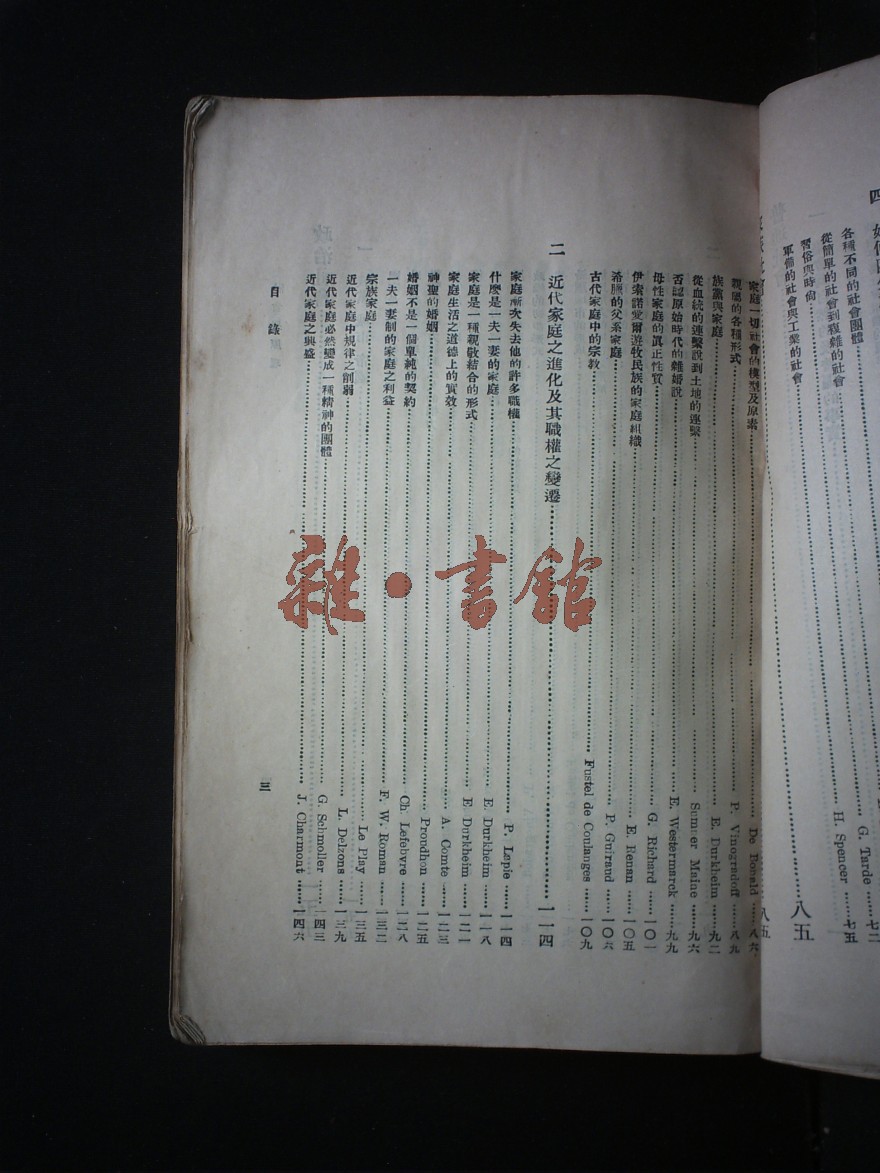 各種不同的社會團體 G. Tarde 七二
從簡單的社會到複雜的社會 H. Spencer 七五
習俗與時尙
軍備的社會與工業的社會
八五
家庭一切社會的模型及原素 De Bonald 八六
親屬的各種形式 P. Vinogradoff 八九
族黨與家庭 E. Durkheim 九二
從血統的連繫說到土地的連繫 Sumner Maine 九六
否認原始時代的雜婚說 E. Westermarck 九九
母性家庭的眞正性質 G. Richard 一〇一
伊索諾愛爾遊牧民族的家庭組織 E. Renan 一〇五
希臘的父系家庭 P. Guiraud 一〇六
古代家庭中的宗教 Fustel de Coulanges 一〇九
二 近代家庭之進化及其職權之變遷 一一四
家庭漸次失去他的許多職權 P. Lapie 一一四
什麼是一夫一妻的家庭 E. Durkheim 一一八
家庭是一種親敬結合的形式 E. Durkheim 一二一
家庭生活之道德上的實效 A. Comte 一二三
神聖的婚姻 Proudhon 一二五
婚姻不是一個單純的契約 Ch. Lefebvre 一二八
一夫一妻制的家庭之利益 F. W. Roman 一三二
宗族家庭 Le Play 一三五
近代家庭中規律之削弱 L. Delzons 一三九
近代家庭必然變成一種精神的團體 G. Schmoller 一四三
近代家庭之興盛 J. Charmont 一四六
目錄 三
雜·書館